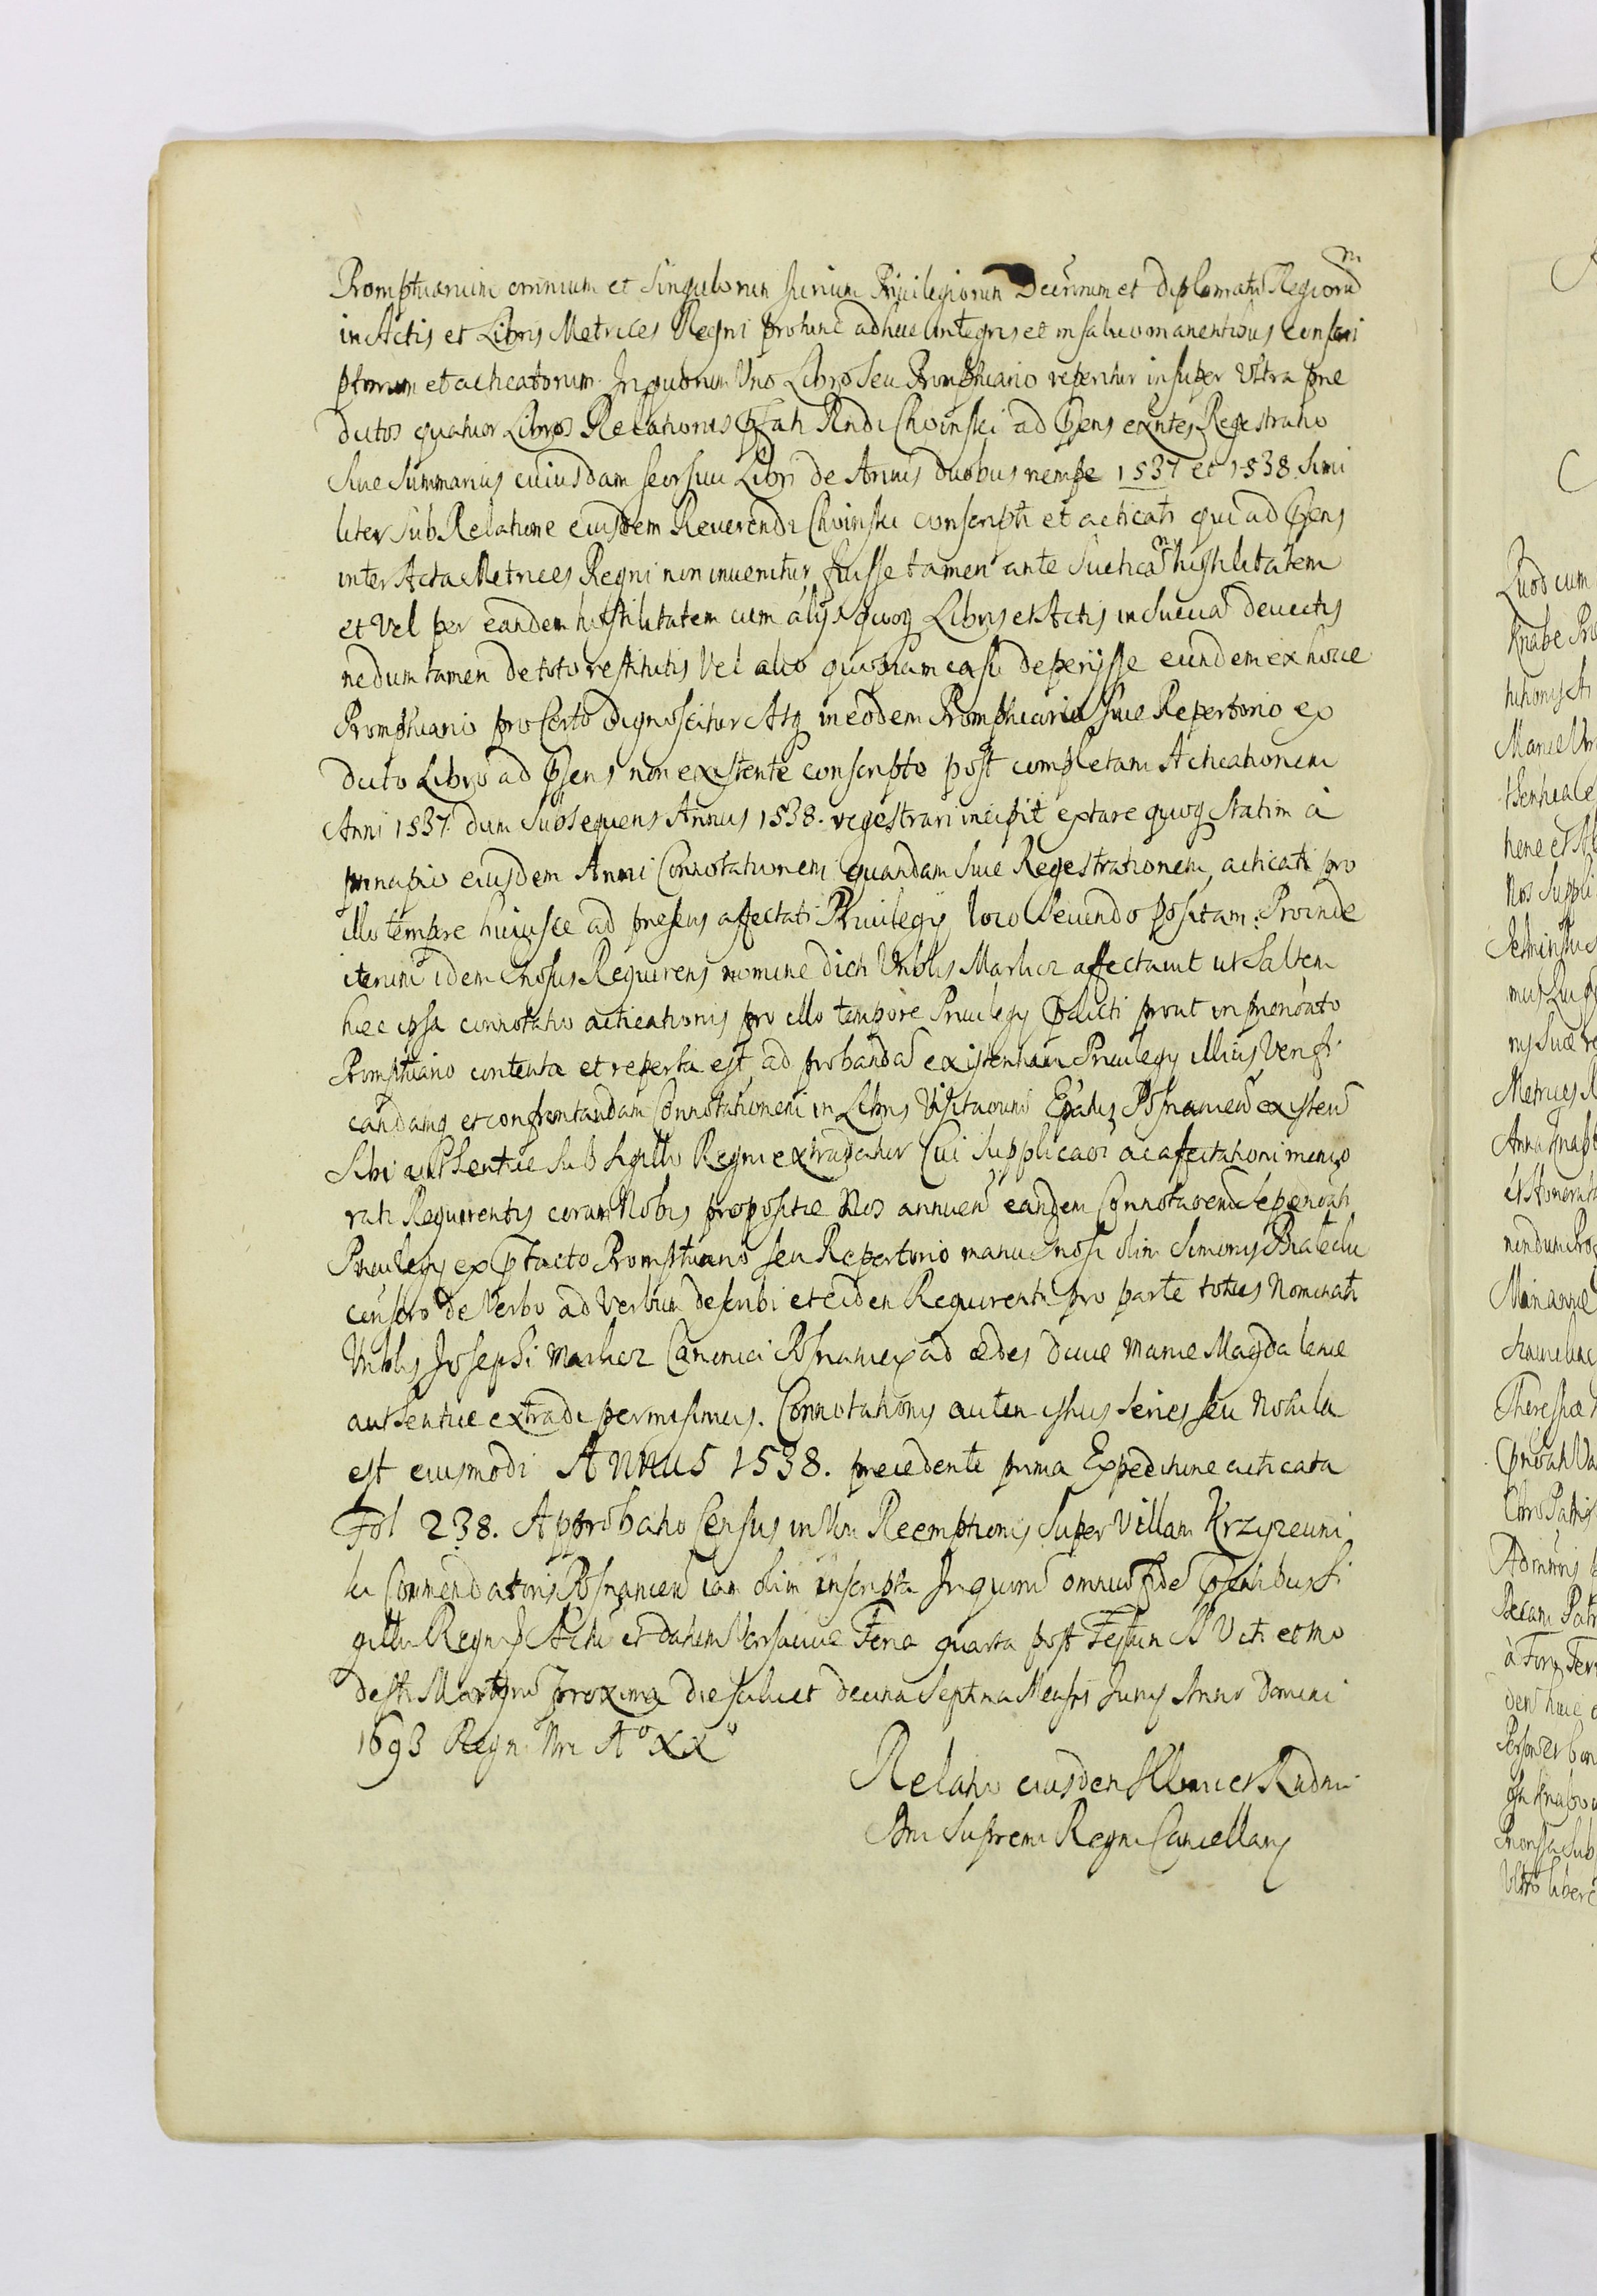 Promptuarium omnium et singulorum Jurium Privilegiorum Decretorum et diplomatū Regiorū
in Actis et Libris Metrices Regni protunc adhuc integris et in salvo manentibus conscri
ptorum et acticatorum. In quorum Uno Libro Seu Promptuario reperitur insuper Ultra præ
dictos quatuor Libros Relationis Rndi Choinski ad Psens exntes Regestratio
Sive Summarius cuiusdam seorsivi Libri de Annis duobus nempe 1537 et 1538 simi
liter sub Relatione eiusdem Reverendi Choinski conscripti et acticati qui ad Psens
inter Acta Metrices Regni non invenitur fuisse tamen ante Sueticā hostilitatem
et Vel per eandem hostilitatem cum alijs quoq Libris et Actis in Sueciā devectis
nedum tamen de toto restitutis Vel alio quopiam casu deperijsse eundem ex hocce
Promptuario pro Certo dignoscitur Atq in eodem Promptuario sive Repertorio ex
dicto Libro ad Psens non existente conscripto post completam Acticationem
Anni 1537. dum subsequens Annus 1538. regestrari incipit extare quoq statim a
principio eiusdem Anni Connotationem quandam sive Regestrationem, acticati pro
illo tempore huiusce ad presens affectati Privilegij loco Secundo positam: Proinde
iterum idem Gnosus Requirens nomine dicti Vnblis Marlicz affectavit ut saltem
hæc ipsa connotatio acticationis pro illo tempore Privilegij Pdicti prout in prenōato
Promptuario contenta et reperta est, ad probandā existentiam Privilegij illius Verifi
candamq et confrontandam Connotationem in Libris Visitationū Epalis Posnanien existen
Sibi authentice sub sigillo Regni extradatur Cui supplicaōi ac affectationi memo
rati Requirentis coram Nobis propositæ Nos annuen eandem Connotationem Sepenōati
Privilegij ex Ptacto Promptuario seu Repertorio manu Gnosi olim Simonis
conscro de Verbo ad Verbum describi et eidem Requirenti pro parte toties Nominati
Vnblis Josephi Marlicz Canonici Posnanien ad ædes divæ Mariæ Magdalenæ
authentice extradi permisimus. Connotationis autem istius Series seu Notula
est eiusmodi Annus 1538. precedente prima Expeditione acticata
Fol 238. Approbatio Census in Vim Reemptionis super Villam Krzyzewni
ki Commendatoris Posnanien iam olim inscripta In quorū omniū fidē Psentibus Si
gillū Regni Actū et datum Varsaviæ Feria quarta post Festum SS Viti et Mo
desti Martyrū proxima die scilicet decima Septima Mensis Junij Anno Domini
1693 Regni Nri Aº XXº
Relatio eiusdem Illmi et Rndmi
Dni Supremi Regni Cancellarij